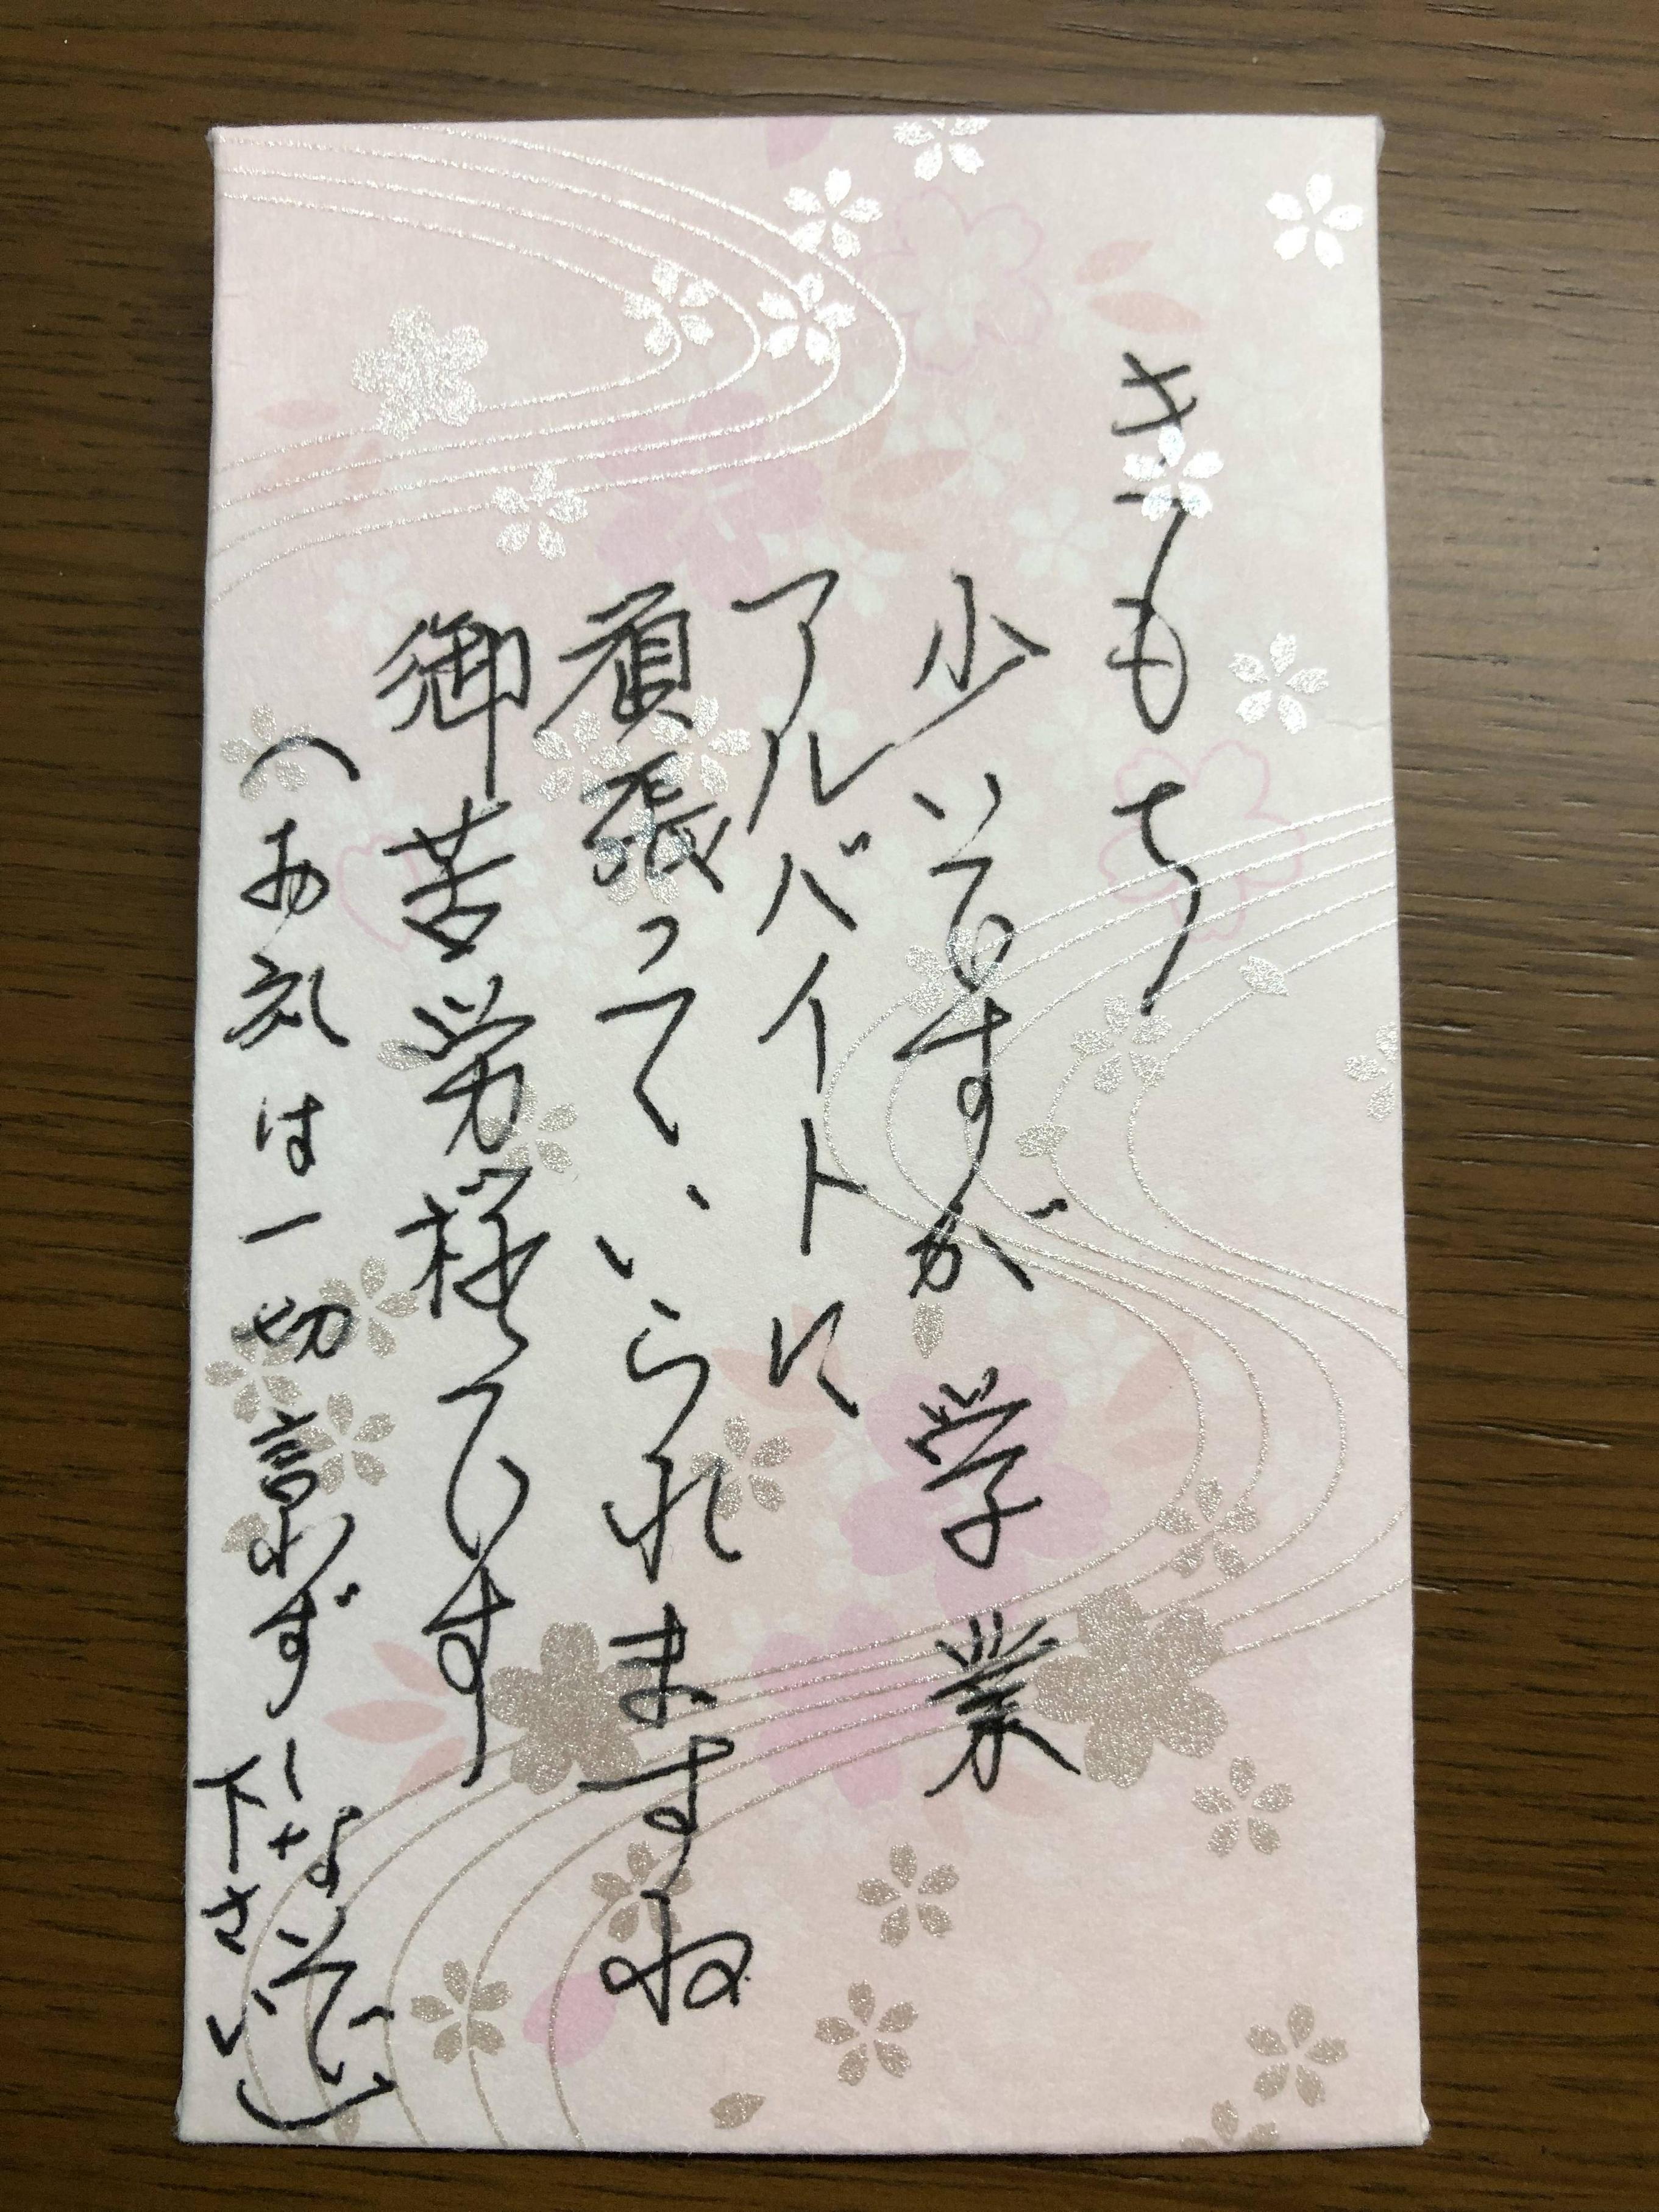 きもち
少いですが 学業
アルバイトに
頑張って、いられますね
御苦労様でです
(お礼は一切言わずしないで
下さい)